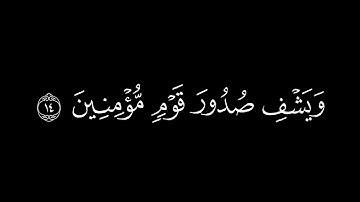 وَيَشۡفِ صُدُورَ قَوۡمٖ مُّؤۡمِنِينَ ١٤